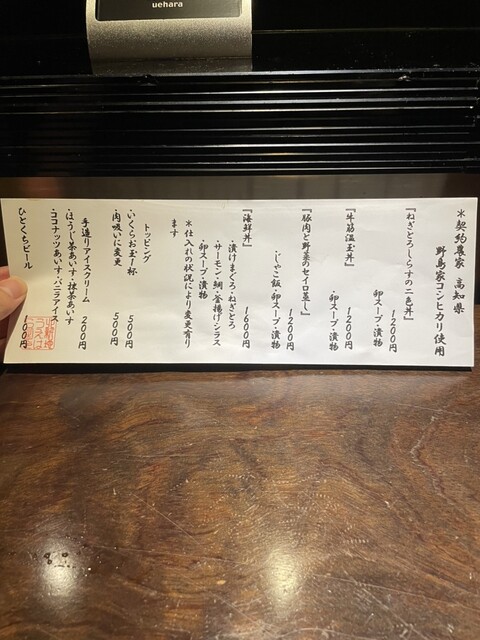 uehara
＊契約農家 高知県
野島家コシヒカリ使用
『ねぎとろしらすの二色丼』
1200円
卵スープ・漬物
『牛筋温玉丼』
1200円
・卵スープ・漬物
『豚肉と野菜のセイロ蒸し』
1200円
・じゃこ飯・卵スープ・漬物
『海鮮丼』
1600円
・漬けまぐろ・ねぎとろ
・サーモン・鯛・釜揚げシラス
卵スープ・漬物
＊仕入れの状況により変更有り
ます
トッピング
・いくらお玉1杯 500円
・肉吸いに変更 500円
手造りアイスクリーム 200円
・ほうじ茶あいす・抹茶あいす
・ココナッツあいす・バニラアイス
ひとくちビール 100円